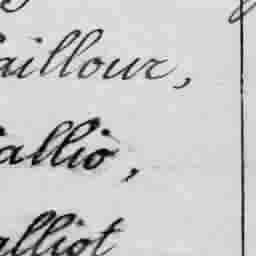 aillour,
allio,
alliot